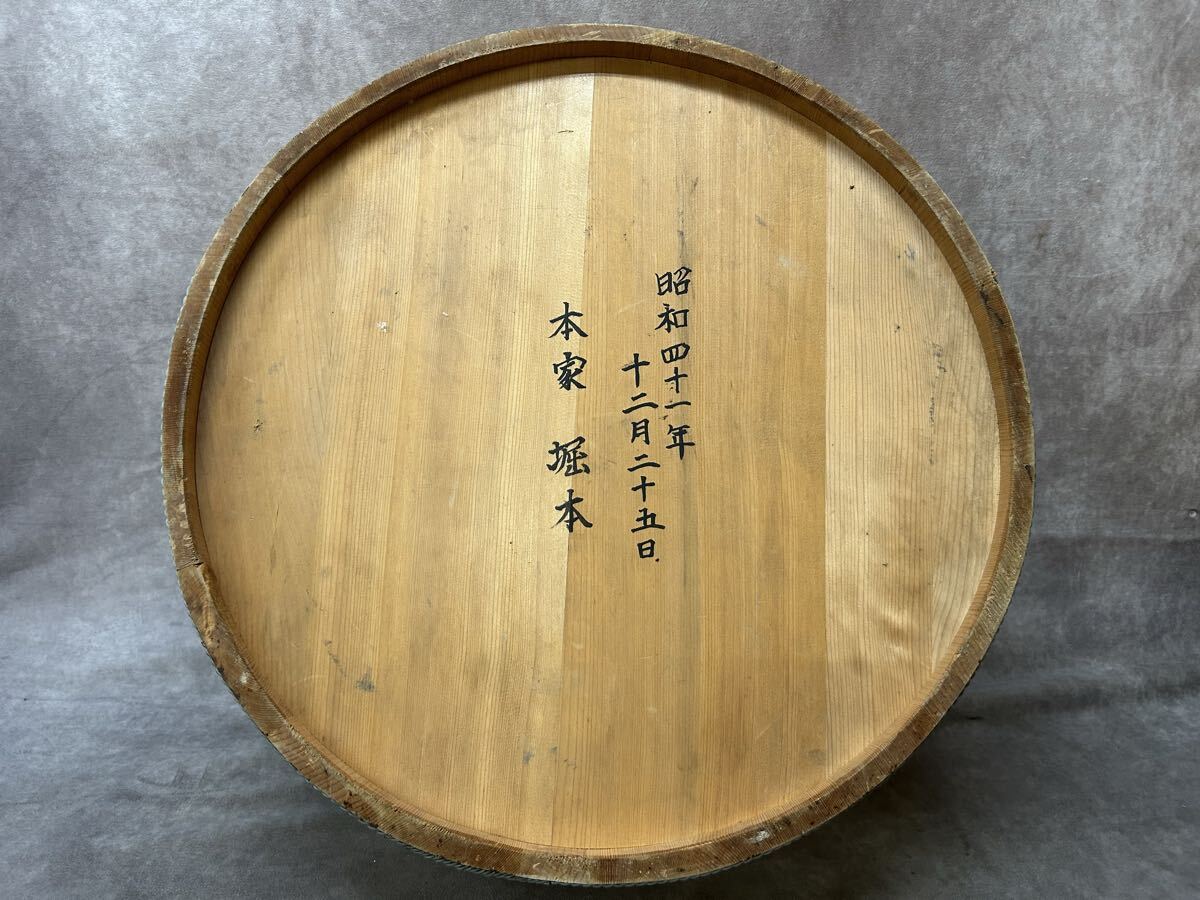 昭和四十一年
十二月二十五日
本家 堀本